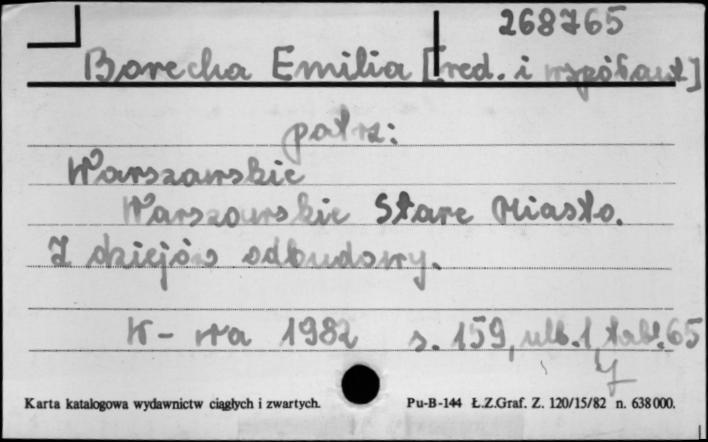 268765
Borecka Emilia [red. i współaut]
patrz:
Warszawskie
Warszawskie Stare Miasto.
Z dziejów odbudowy.
W-wa 1982 s. 159, nlb. 1, tabl. 65
Karta katalogowa wydawnictw ciągłych i zwartych. Pu-B-144 Ł.Z.Graf. Z. 120/15/82 n. 638 000.